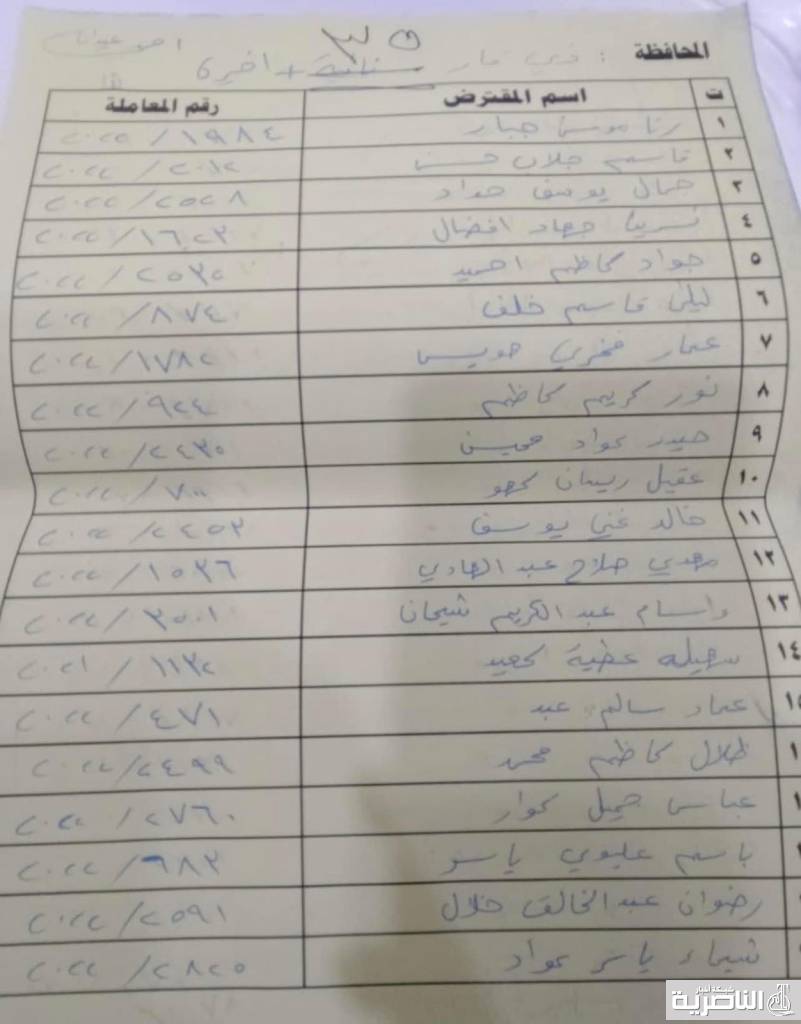 المحافظة : ذي قار ثانية + اخير ٦
٣٥
ت اسم المقترض رقم المعاملة
١ رنا موسى جبار ١٩٨٤ / ٢٠٢٢
٢ قاسم جلاب حسن ٢٠١٢ / ٢٠٢٢
٣ جمال يوسف حداد ٢٥٢٨ / ٢٠٢٢
٤ نسرين جهاد افضال ١٦٢٣ / ٢٠٢٢
٥ جواد كاظم احميد ٢٥٣٢ / ٢٠٢٢
٦ ليلى قاسم خلف ٨٧٤ / ٢٠٢٢
٧ عمار فخري حويس ١٧٨٢ / ٢٠٢٢
٨ نور كريم كاظم ٩٢٤ / ٢٠٢٢
٩ حيدر عواد محيسن ٢٤٣٥ / ٢٠٢٢
١٠ عقيل ريسان ٧٠٠ / ٢٠٢٢
١١ خالد غني يوسف ٢٤٥٣ / ٢٠٢٢
١٢ مهدي صلاح عبد الهادي ١٥٣٦ / ٢٠٢٢
١٣ وسام عبد الكريم شيحان ٣٥٠١ / ٢٠٢٢
١٤ سهيله عطية ١١٣٢ / ٢٠٢١
١٥ عماد سالم عبد ٤٧١ / ٢٠٢٢
١ طلال كاظم محمد ٢٤٩٩ / ٢٠٢٢
١ عباس جميل ٢٧٦٠ / ٢٠٢٢
باسم عليوي ياسر ٩٨٣ / ٢٠٢٢
رضوان عبد الخالق جلال ٢٥٩١ / ٢٠٢٢
شيماء ياسر عواد ٢٨٢٥ / ٢٠٢٢
شبكة اخبار
الناصرية